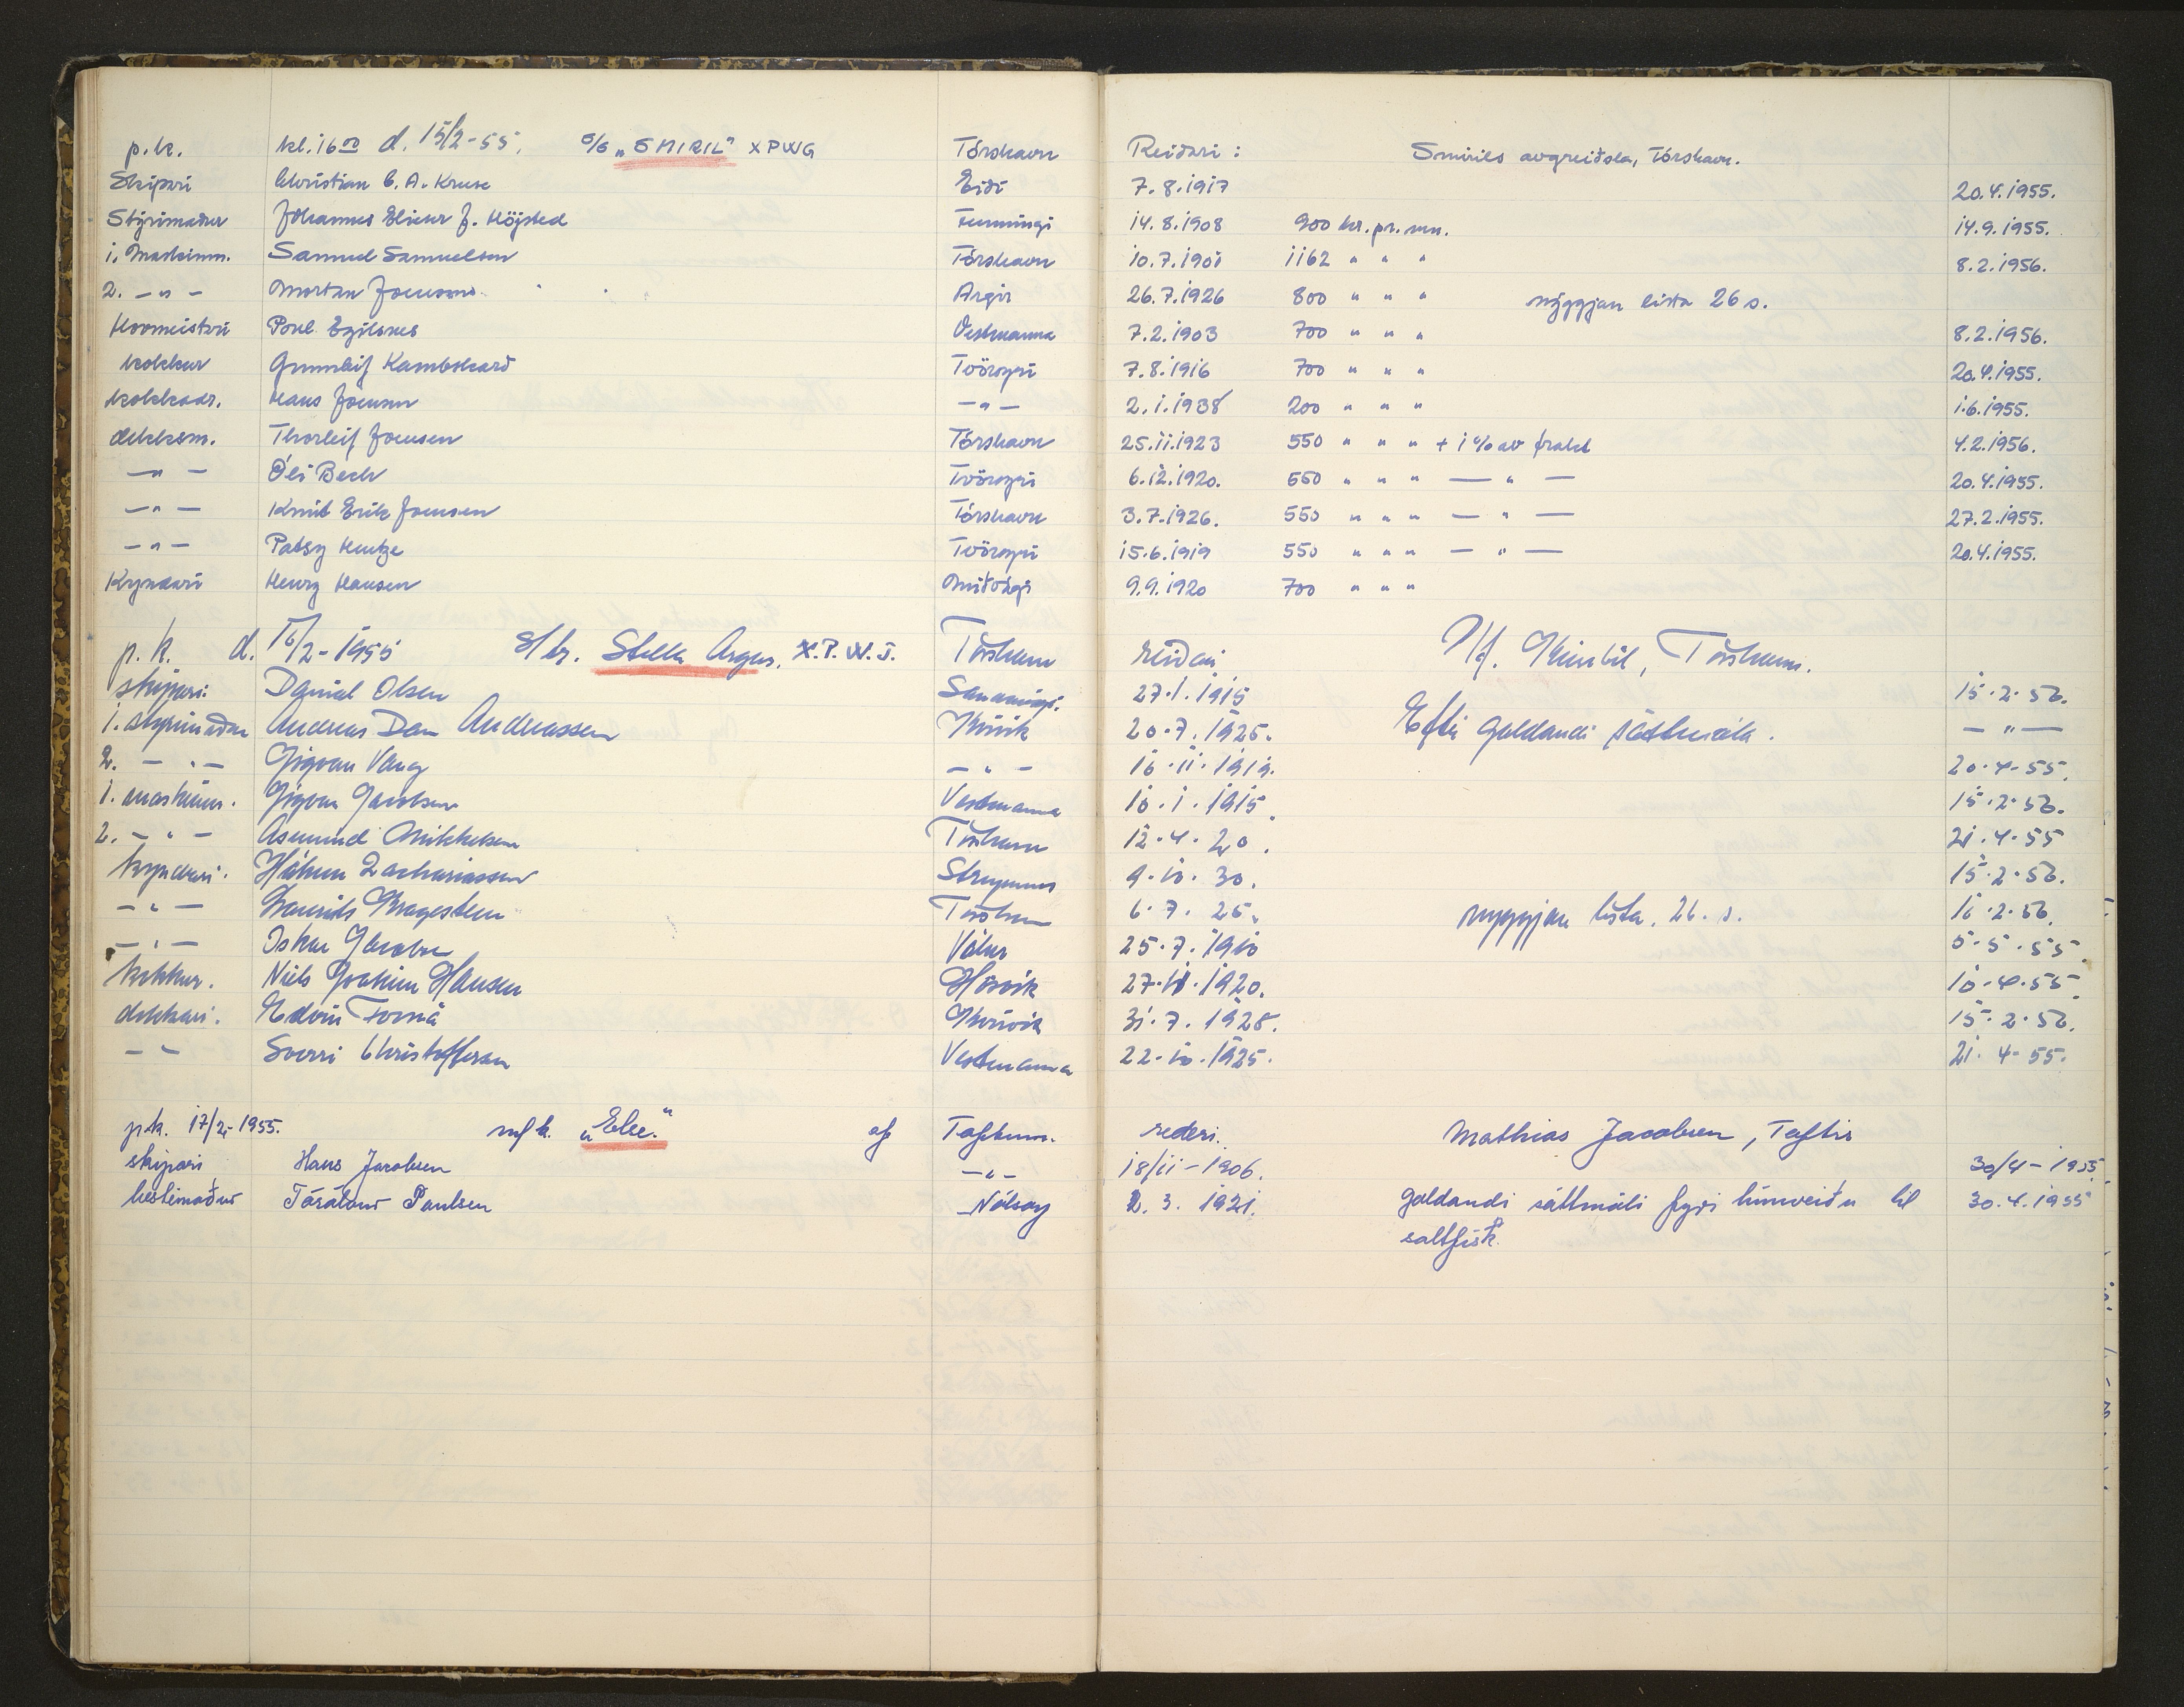 p.k. kl. 16 00 d. 15/2-55. s/s „SMIRIL" XPWG Tórshavn Reiðari: Smirils avgreiðsla, Tórshavn.
Skipari Christian C. A. Kruse Eiði 7.8.1917 20.4.1955.
Stýrimaður Jóhannes Elieser J. Höjsted Funningi 14.8.1908 900 kr. pr. mn. 14.9.1955.
1. Maskinm. Samuel Samuelsen Tórshavn 10.7.1901 1162 " " " 8.2.1956.
2. —"— Morten Joensen Argir 26.7.1926 800 " " " nýggjan lista 26 s.
Hovmeistari Poul Egilsnes Vestmanna 7.2.1903 700 " " " 8.2.1956.
kokkur Gunnleif Kambskarð Tvöroyri 7.8.1916 700 " " " 20.4.1955.
kokkadr. Hans Joensen —"— 2.1.1938 200 " " " 1.6.1955.
dekksm. Thorleif Joensen Tórshavn 25.11.1923 550 " " " + 1% av frakt 4.2.1956.
—"— Óli Bech Tvöroyri 6.12.1920. 550 " " " —"— 20.4.1955.
—"— Knút Erik Joensen Tórshavn 3.7.1926. 550 " " " —"— 27.2.1955.
—"— Patsy Hentze Tvöroyri 15.6.1919 550 " " " —"— 20.4.1955.
Kyndari Henry Hansen Miðvági 9.9.1920 700 " " "
p.k. d. 16/2-1955 S/tr. Stella Argus. X.P.W.J. Tórshavn reiðari Tórshavn.
skipari: Daniel Olsen Sandavági. 27.1.1915 15.2.56.
1. stýrimaður Andreas Dam Andreassen Kvívík 20.7.1925. Eftir galdandi sáttmála. —"—
2. —"— Jigvan Vang —"— 16.11.1919. 20.4-55.
1. maskinm. Jigvan Jacobsen Vestmanna 10.1.1915. 15.2.56.
2. —"— Asmund Mikkelsen Tórshavn 12.4.20. 21.4.55
kyndari. Hákun Zachariassen Streymnes 9.10.30. 15.2.56.
—"— Laurits Kragesteen Tórshavn 6.7.25. nyggjan lista. 26. s. 16.2.56.
—"— Oskar Jacobsen Válur 25.7.1910 5.5.55.
kokkur. Niels Joakim Hansen Hósvík 27.11.1920. 10.4.55.
dekkari. Edvin Forná Kvívík 31.7.1928. 15.2.56.
—"— Sverri Christoffersen Vestmanna 22.10.1925. 21.4-55.
p.k. 17/2-1955. m/k. „Else." af Toftum. rederi. Mathias Jacobsen, Toftir
skipari Hans Jacobsen —"— 18/11-1906. 30/4-1955.
bestimaður Tórálvur Paulsen Nólsoy 2.3.1921. galdandi sáttmáli fyri línuveiðu til 30.4.1955
saltfisk.